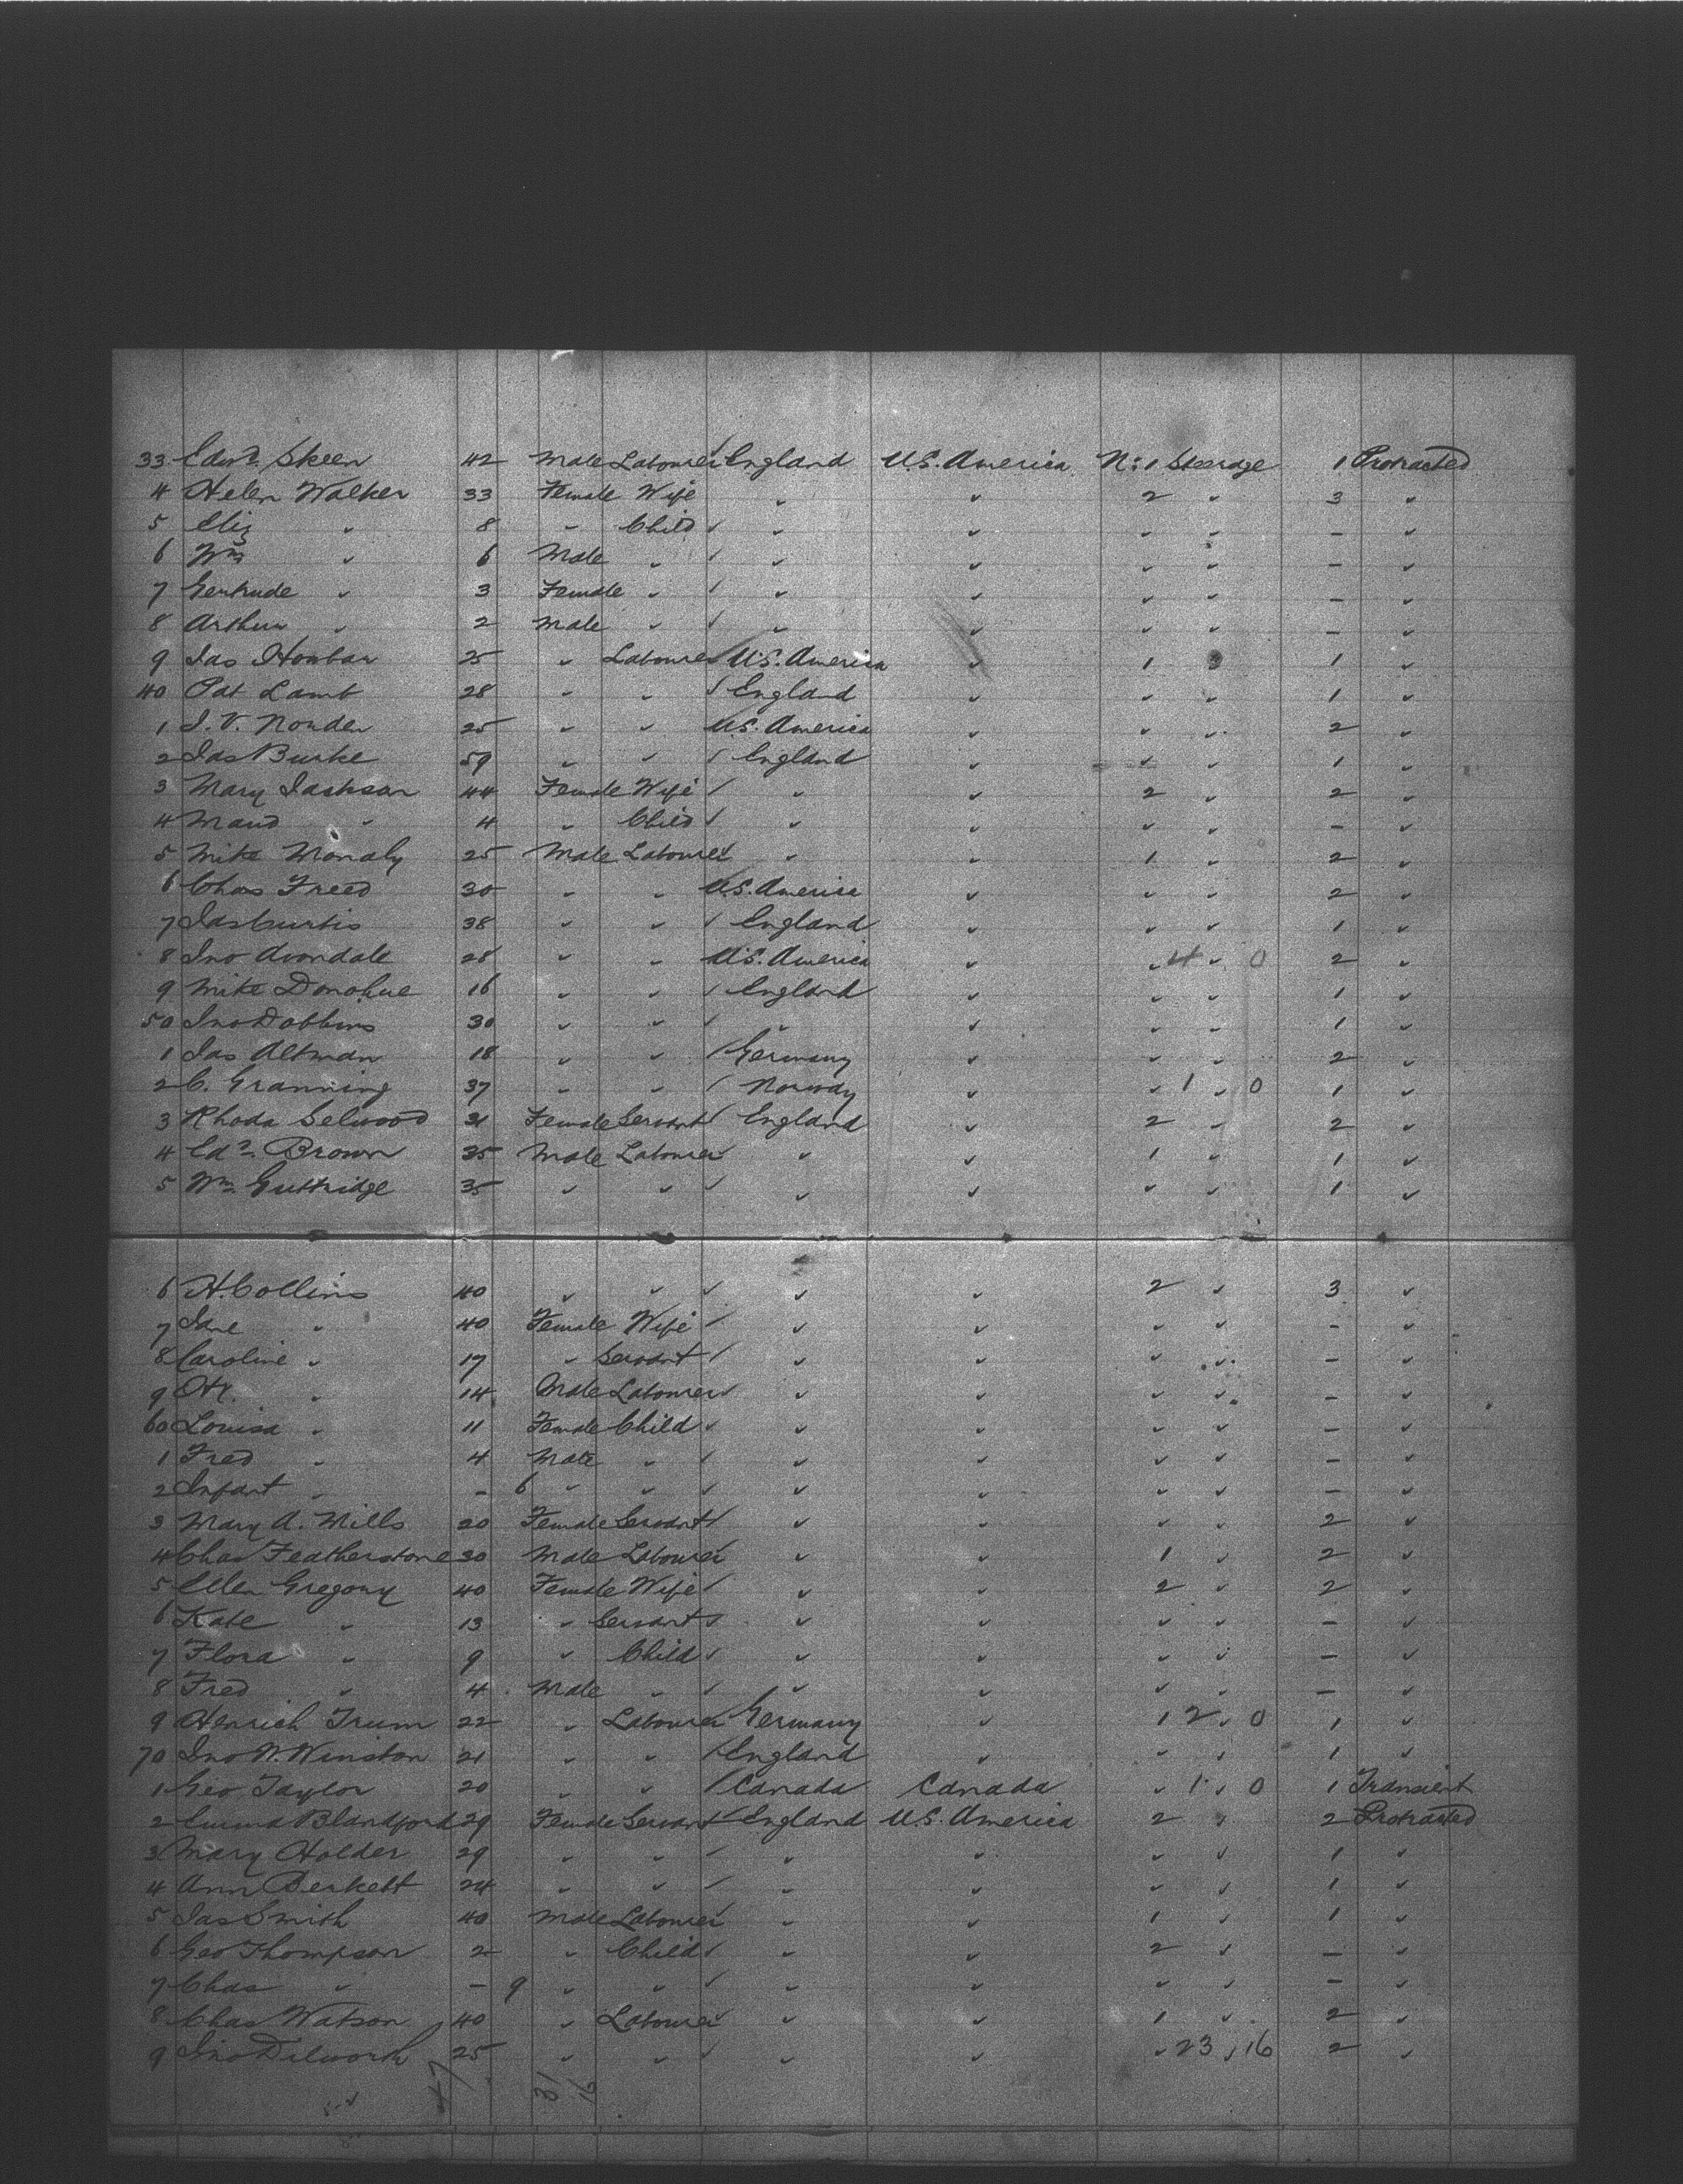 33 Edwd. Skeen 42 Male Labourer / England U.S. America No. 1 Steerage 1 Protracted
4 Helen Walker 33 Female Wife " " 2 " 3 "
5 Eliz " 8 " Child / " " " " – "
6 Wm " 6 Male " / " " " " – "
7 Gertrude " 3 Female " / " " " " – "
8 Arthur " 2 Male " / " " " " – "
9 Jas 25 " Labourer U.S. America " 1 " 1 "
40 Pat Lamb 28 " " / England " " " 1 "
1 J. V. 25 " " U.S. America " " " 2 "
2 Jas Burke 59 " " / England " " " 1 "
3 Mary Jackson 44 Female Wife / " " 2 " 2 "
4 Maud " 4 " Child / " " " " – "
5 Mike 25 Male Labourer / " " 1 " 2 "
6 Chas Freed 30 " " U.S. America " " " 2 "
7 Jas Curtis 38 " " / England " " " 1 "
8 Jno Avondale 28 " " U.S. America " " 4 " 0 2 "
9 Mike Donohue 16 " " / England " " " 1 "
50 Jno Dobbins 30 " " / " " " " 1 "
1 Jas Altman 18 " " / Germany " " " 2 "
2 C. Granning 37 " " / Norway " " 1 " 0 1 "
3 Rhoda Selwood 31 Female Servant / England " 2 " 2 "
4 Edd. Brown 35 Male Labourer / " " 1 " 1 "
5 Wm Guttridge 35 " " / " " " " 1 "
6 H. Collins 40 " " / " " 2 " 3 "
7 Jane " 40 Female Wife / " " " " – "
8 Caroline " 17 " Servant / " " " " – "
9 Hy. " 14 Male Labourer / " " " " – "
60 Louisa " 11 Female Child / " " " " – "
1 Fred " 4 Male " / " " " " – "
2 Infant " – 6 " " / " " " " – "
3 Mary A. Mills 20 Female Servant / " " " " 2 "
4 Chas Featherstone 30 Male Labourer / " " 1 " 2 "
5 Ellen Gregory 40 Female Wife / " " 2 " 2 "
6 Kate " 13 " Servant / " " " " – "
7 Flora " 9 " Child / " " " " – "
8 Fred " 4 Male " / " " " " – "
9 Henrich Trum 22 " Labourer Germany " 1 2 " 0 1 "
70 Jno W. Winston 21 " " / England " " " 1 "
1 Geo Taylor 20 " " / Canada Canada " 1 " 0 1 Transient
2 Emma Blandford 29 Female Servant / England U.S. America 2 " 2 Protracted
3 Mary Holder 29 " " / " " " " 1 "
4 Ann Berkett 24 " " / " " " " 1 "
5 Jas Smith 40 Male Labourer / " " 1 " 1 "
6 Geo Thompson 2 " Child / " " 2 " – "
7 Chas " – 9 " " / " " " " – "
8 Chas Watson 40 " Labourer / " " 1 " 2 "
9 Jno Dilworth 25 " " / " " " 23 " 16 2 "
47 31 16